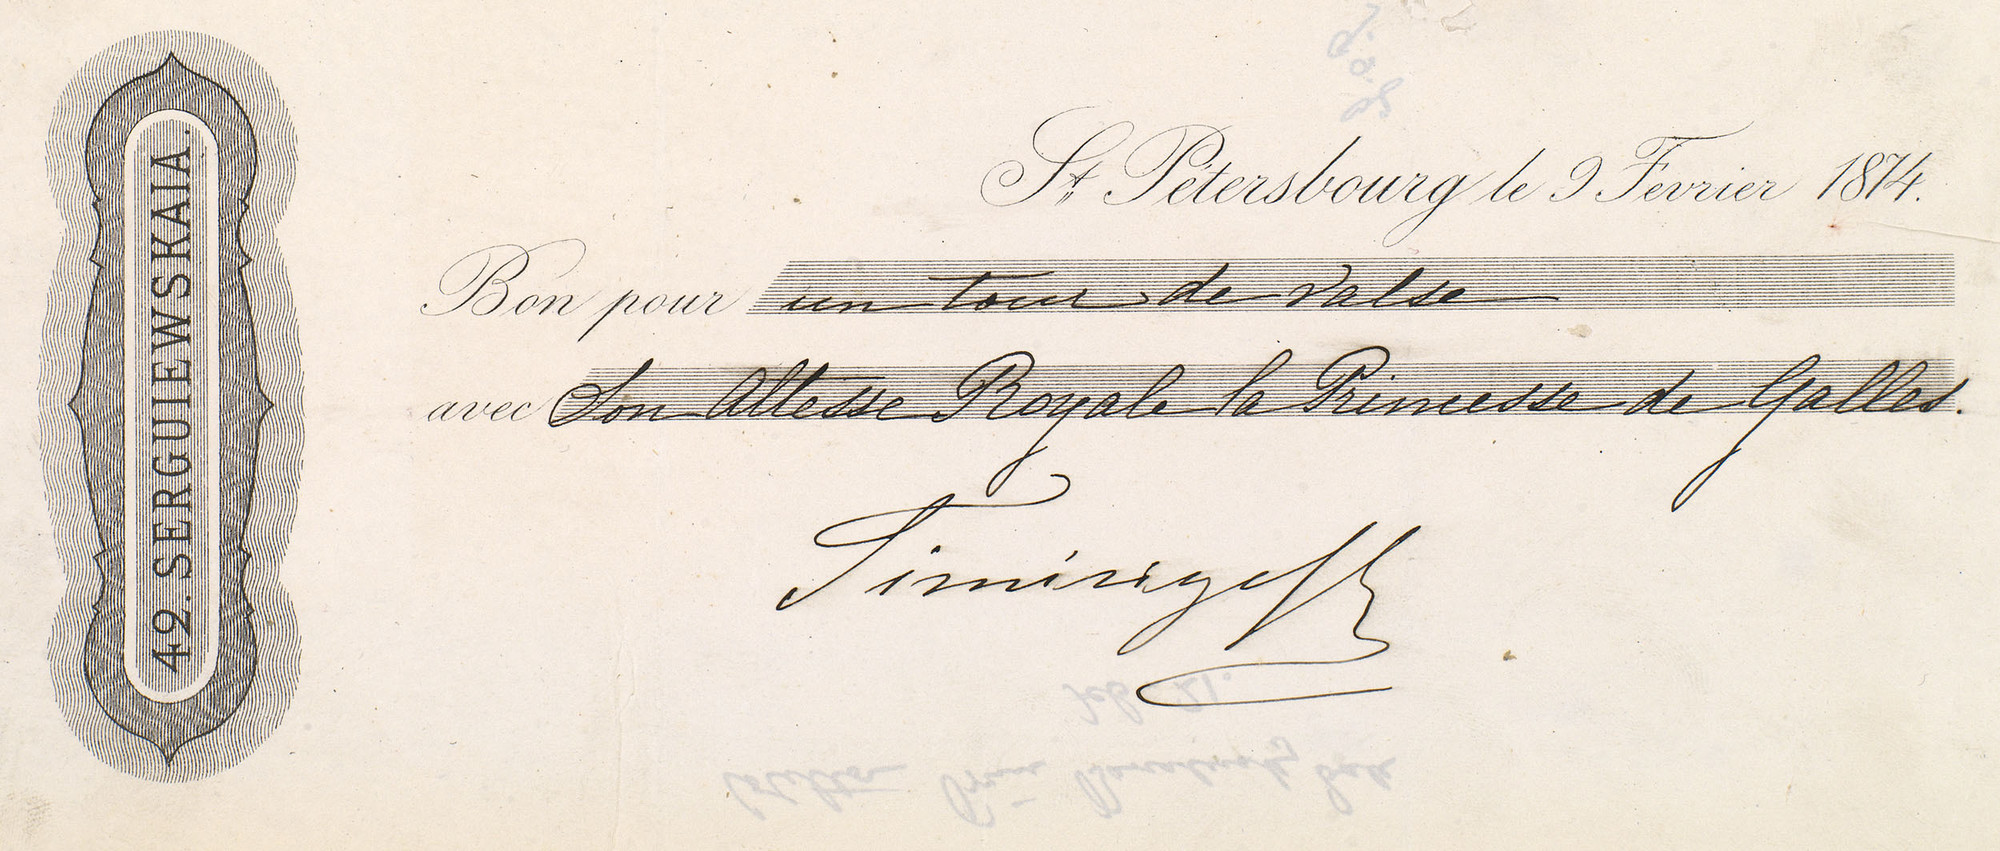 42. SERGUIEWSKAIA.
St Pétersbourg le 9 Fevrier 1874.
Bon pour un tour de valse
avec Son Altesse Royale la Princesse de Galles.
Feb 21.